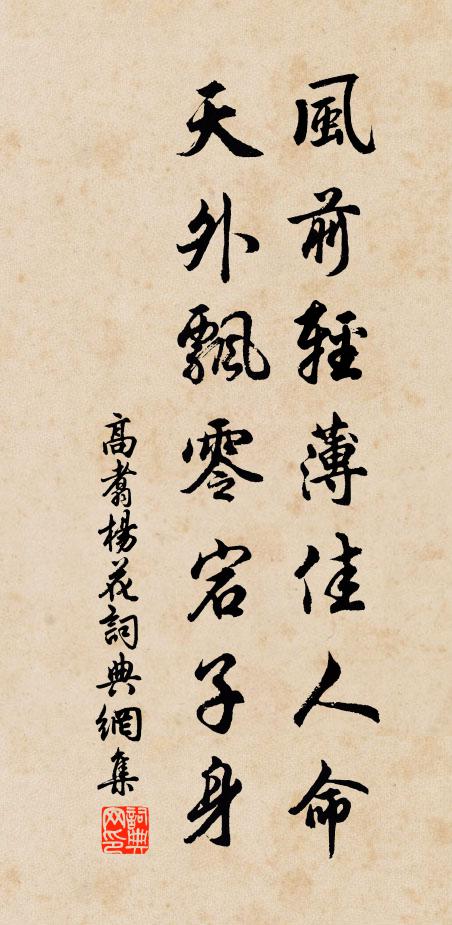 風前輕薄佳人命
天外飄零宕子身
高翥楊花詞典網集
詞典网印